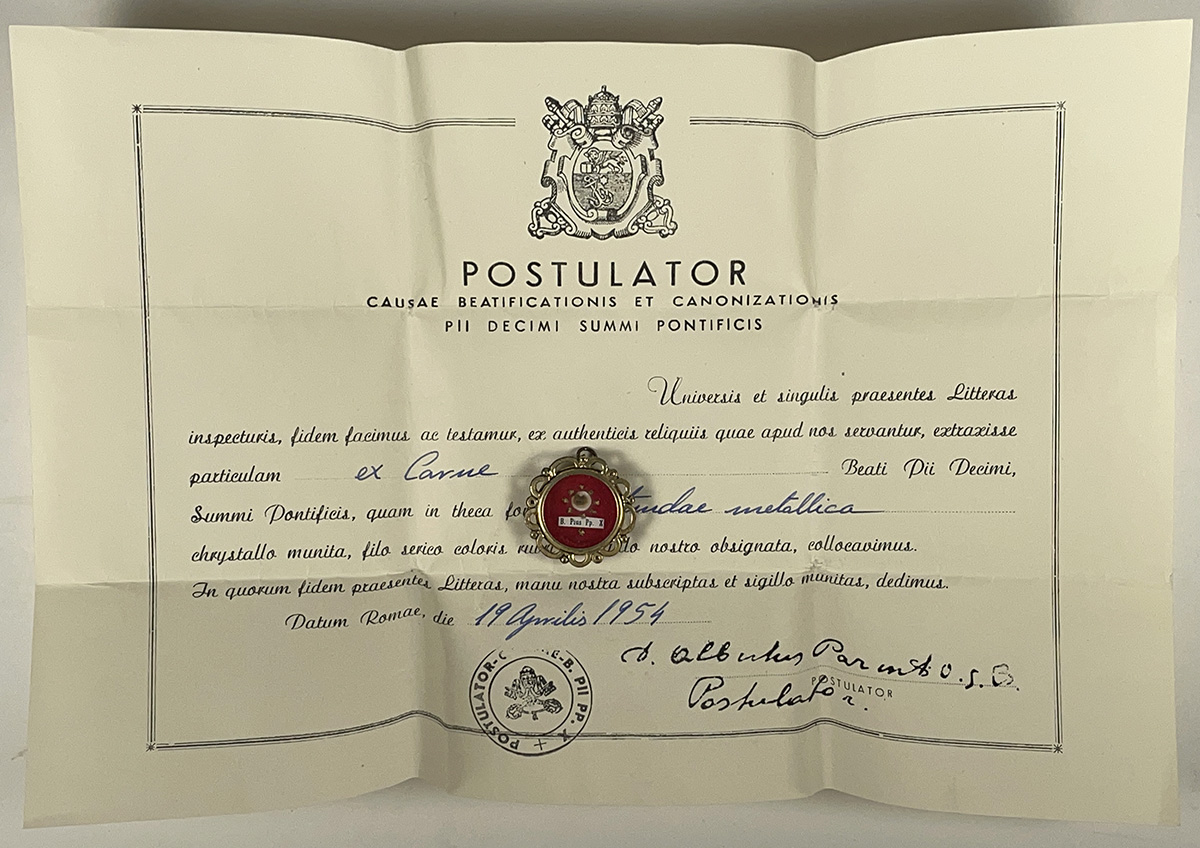 POSTULATOR
CAUSAE BEATIFICATIONIS ET CANONIZATIONIS
PII DECIMI SUMMI PONTIFICIS
Universis et singulis praesentes Litteras
inspecturis, fidem facimus ac testamur, ex authenticis reliquiis quae apud nos servantur, extraxisse
particulam ex Carne Beati Pii Decimi,
Summi Pontificis, quam in theca metallica
B. Pius Pp. X
chrystallo munita, filo serico coloris nostro obsignata, collocavimus.
In quorum fidem praesentes Litteras, manu nostra subscriptas et sigillo munitas, dedimus.
Datum Romae, die 19 Aprilis 1954
D. Albertus Parenti O.S.B.
POSTULATOR
Postulator.
POSTULATOR-C B. PII PP. X